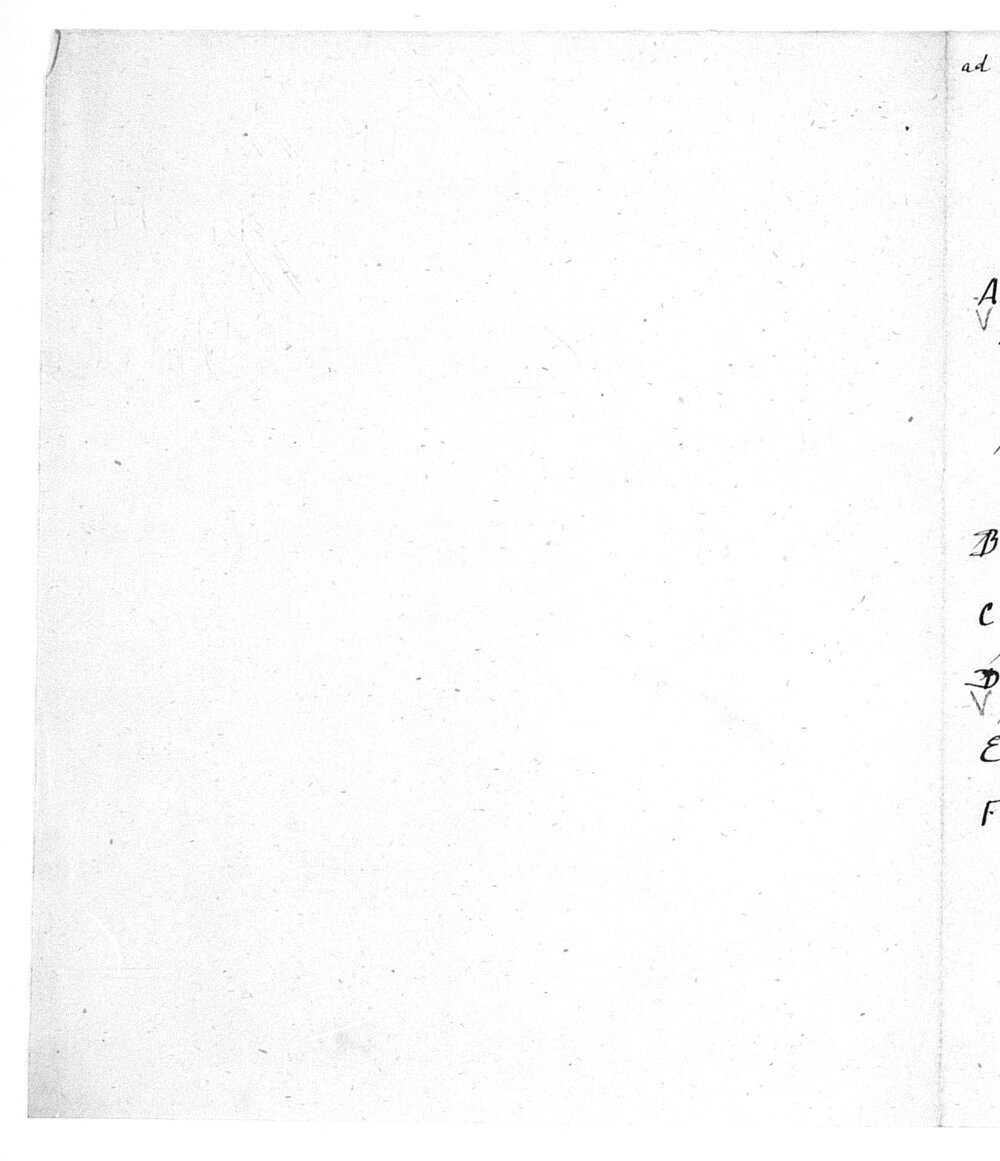 ad
A
B
C
D
E
F